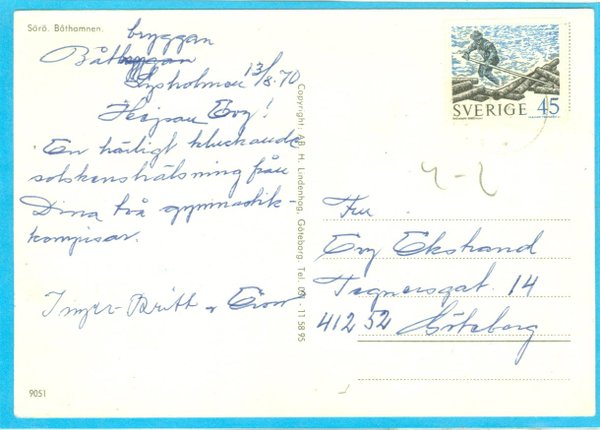 Särö. Båthamnen.
bryggan
Båt
Lysholmen 13/8-70
Hejsan Evy!
En härligt kluckande
solskenshälsning från
Dina två gymnastik-
kompisar.
Inger-Britt
Copyright: AB. H. Lindenhag, Göteborg. Tel. 031-11 58 95
SVERIGE 45
Fru
Evy Ekstrand
Tegnérsgat. 14
412 52 Göteborg
9051